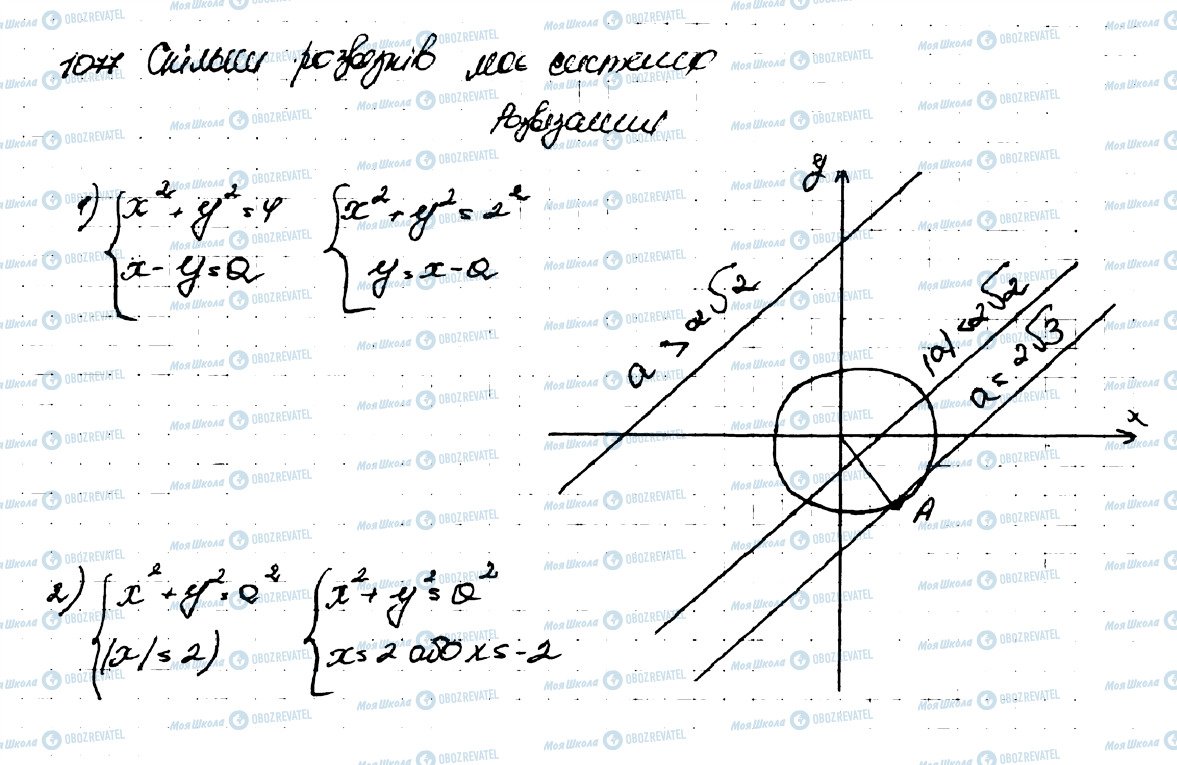 1077 Скільки розвязків має система
Розвязання
1) { x² + y² = 4 { x² + y² = 2²
x - y = a y = x - a
y
a > 2√2
|a| < 2√2
a = 2√3
x
A
2) { x² + y² = a² { x² + y² = a²
(x/ = 2) x = 2 або x = -2
Моя Школа OBOZREVATEL